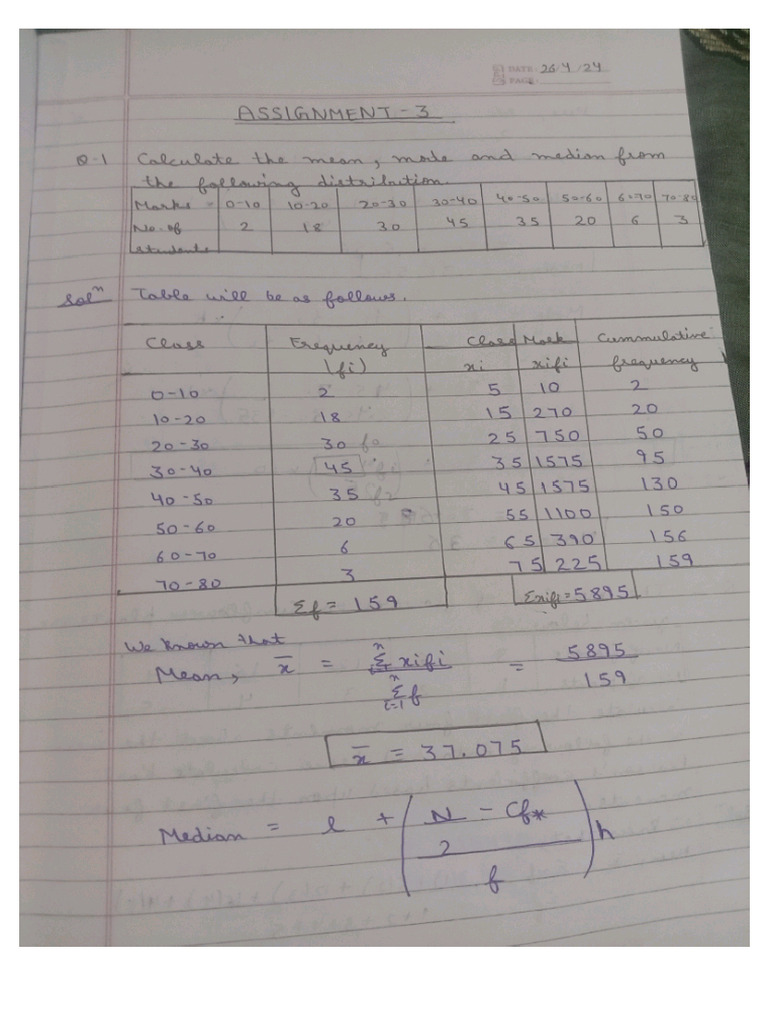 DATE: 26/4/24
PAGE:
ASSIGNMENT - 3
Q-1 Calculate the mean, mode and median from
the following distribution.
Marks = 0-10 10-20 20-30 30-40 40-50 50-60 6-70 70-80
No. of 2 18 30 45 35 20 6 3
students
Solⁿ Table will be as follows.
Class Frequency (fi) Class Mark xi xifi Cummulative frequency
0-10 2 5 10 2
10-20 18 15 270 20
20-30 30 f0 25 750 50
30-40 45 35 1575 95
40-50 35 f2 45 1575 130
50-60 20 55 1100 150
60-70 6 65 390 156
70-80 3 75 225 159
Σf = 159 Σxifi = 5895
We known that
Mean, x̄ = Σⁿ xifi / Σⁿ i=1 f = 5895 / 159
x̄ = 37.075
Median = l + (N/2 - Cf* / f) h